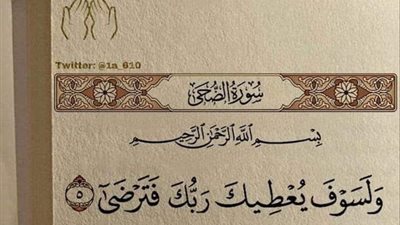 Twitter: @1a_610
سُورَةُ الضُّحَىٰ
بِسْمِ اللَّهِ الرَّحْمَٰنِ الرَّحِيمِ
وَلَسَوْفَ يُعْطِيكَ رَبُّكَ فَتَرْضَىٰٓ ٥